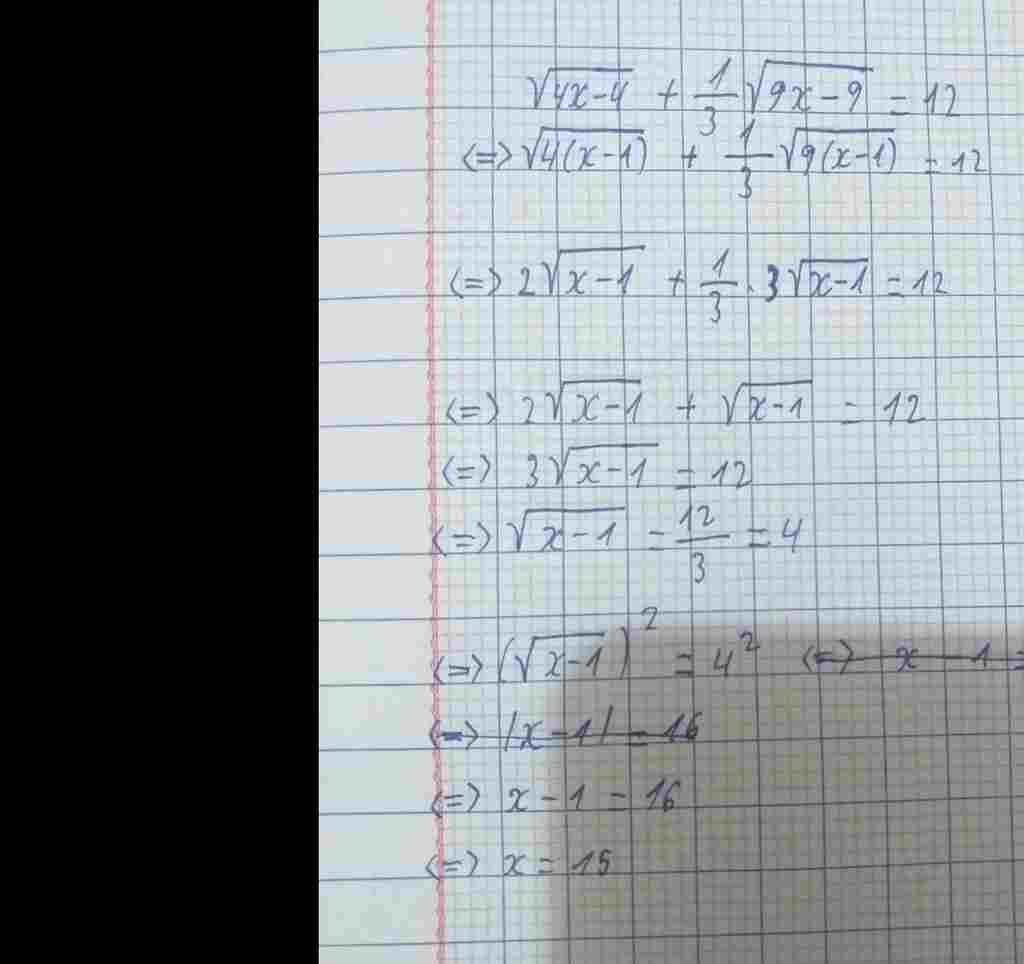 √(4x-4) + 1/3 √(9x-9) = 12
<=> √(4(x-1)) + 1/3 √(9(x-1)) = 12
<=> 2√(x-1) + 1/3 . 3√(x-1) = 12
<=> 2√(x-1) + √(x-1) = 12
<=> 3√(x-1) = 12
<=> √(x-1) = 12/3 = 4
<=> (√(x-1))² = 4² <=> x - 1 =
<=> |x-1| = 16
<=> x - 1 = 16
<=> x = 15